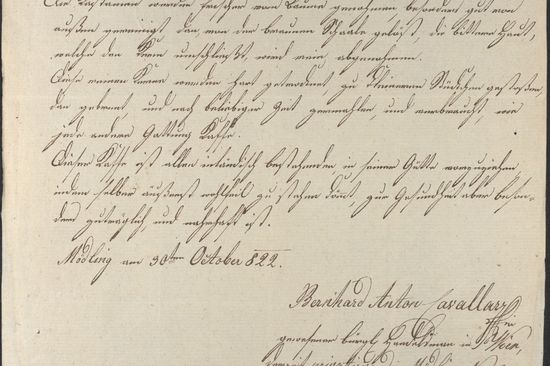 Die Kastanien werden frischer vom Baume genohmen besonders gut von
außen gereinigt dan von der braunen Schaale gelößt, die bittere Haut,
welche den Kern umschließt, wird rein abgenohmen.
Diese reinen Kerne werden hart getrocknet zu kleineren Stückchen gestoßen,
dan gebrent, und nach beliebiger Zeit gemahlen und verbraucht, wie
jede andere Gattung Kaffe.
Dieser Kaffe ist allen inländisch bestehenden in seiner Gütte vorzuziehen,
indem selber äußerst wohlfeil zu stehen kömt, zur Gesundheit aber beson-
ders zuträglich, und nahrhaft ist.
Mödling am 30ten October 822.
Bernhard Anton Cavallar
gewesener bürgl. Handelsman in Wien,